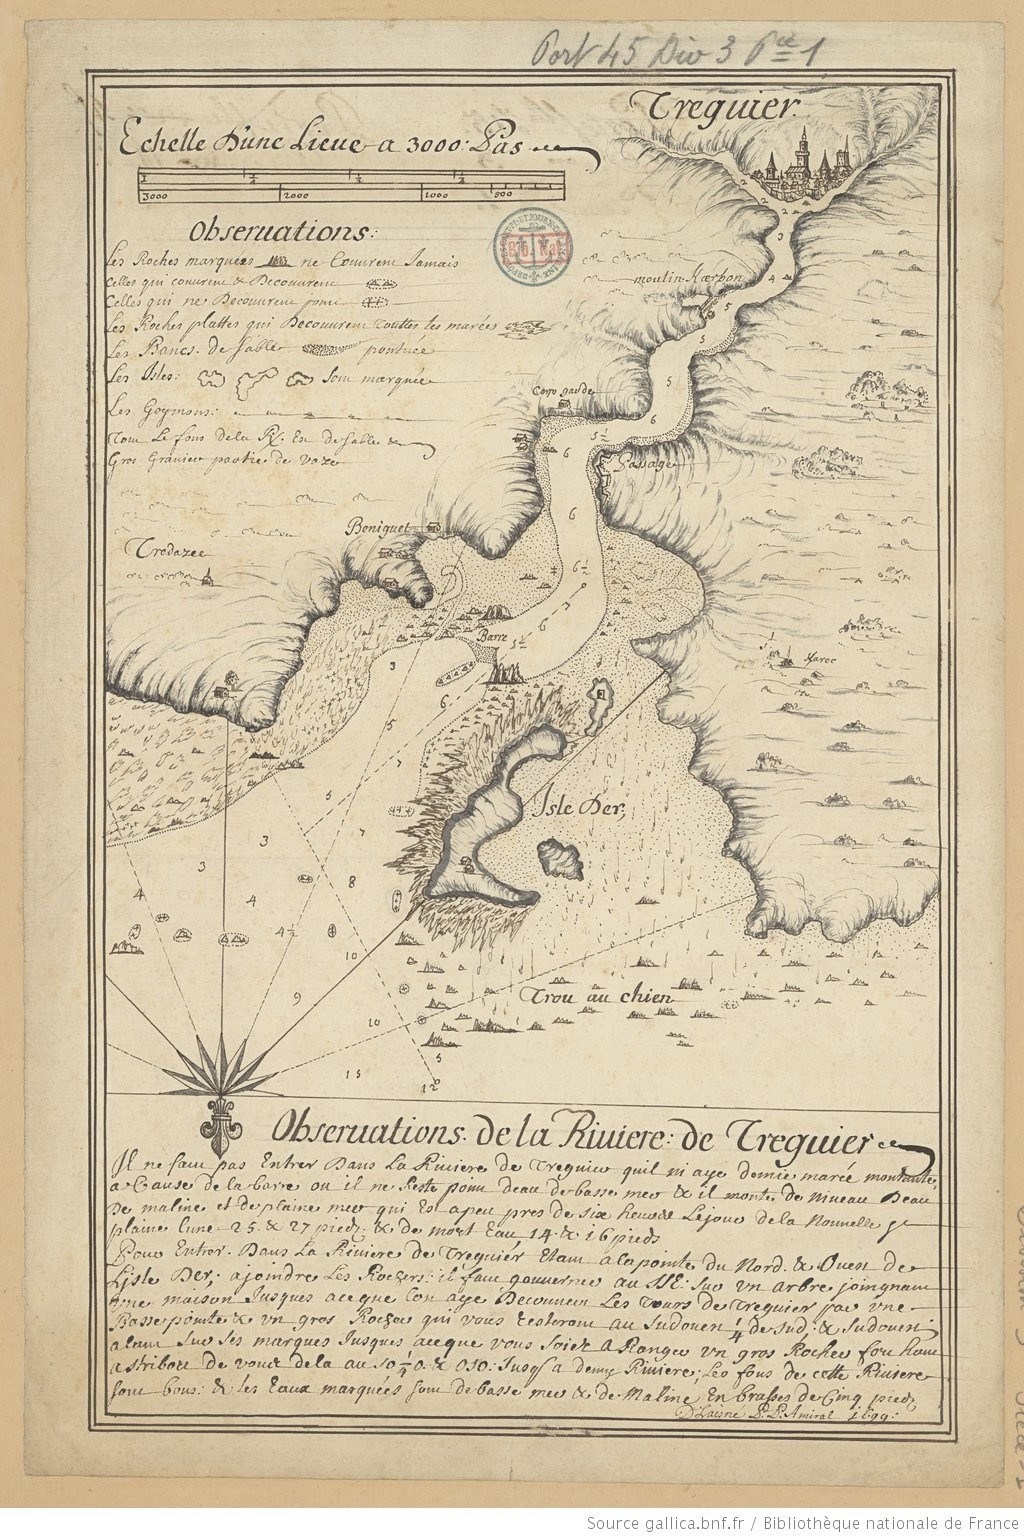 Port 45 Div 3 Pce 1
Treguier.
Echelle D'une Lieue a 3000: Pas
3000 2000 1000 500
Obseruations:
Les Roches marquees ne Couurent Jamais
Celles qui couurent & Decouurent
Celles qui ne Decouurent point
Les Roches plattes qui Decouurent touttes les marées
Les Bancs. de Sable pontuée
Les Isles: Sont marquée
Les Goymons:
Tout Le fons dela R. Est de Sable &
Gros Grauier partie de vaze
moulin
Corp garde
Passage
Beniguet
Tredazec
Barre
Isle Der,
Trou au chien
Obseruations. de la Riuiere: de Treguier
Il ne faut pas Entrer Dans La Riuiere de Treguier quil ni aye demie maré montante,
a Cause de la barre ou il ne Reste point deau de basse mer & il monte de niueau Deau
De maline et de plaine mer qui Est apeu pres de six heures Lejour de la Nouuelle &
plaine Lune 25 & 27 pieds & de mort Eau 14. & 16 pieds
Pour Entrer. Dans La Riuiere de Treguier Etant ala pointe du Nord. & Ouest de
Lisle Der; ajoindre Les Rochers: il faut gouuerner au SSE: Sur vn arbre joingnant
vne maison Jusques aceque Lon aye Decouuert Les Tours de Treguier par vne
Basse pointe & vn gros Rocher qui vous Resteront au Sudouest 1/4 de Sud: & Sudouest
alant Sur Ses marques Jusques aceque vous Soiez a Ranger vn gros Rocher fort haut
astribort de vous dela au SO 1/4 O. & OSO: Jusqs a Demy Riuiere; Les fons de cette Riuiere
Sont bons: & les Eaux marquées Sont de basse mer & de Maline En brasses de Cinq pieds
D Laisné P. P. Amiral 1699:
Source gallica.bnf.fr / Bibliothèque nationale de France